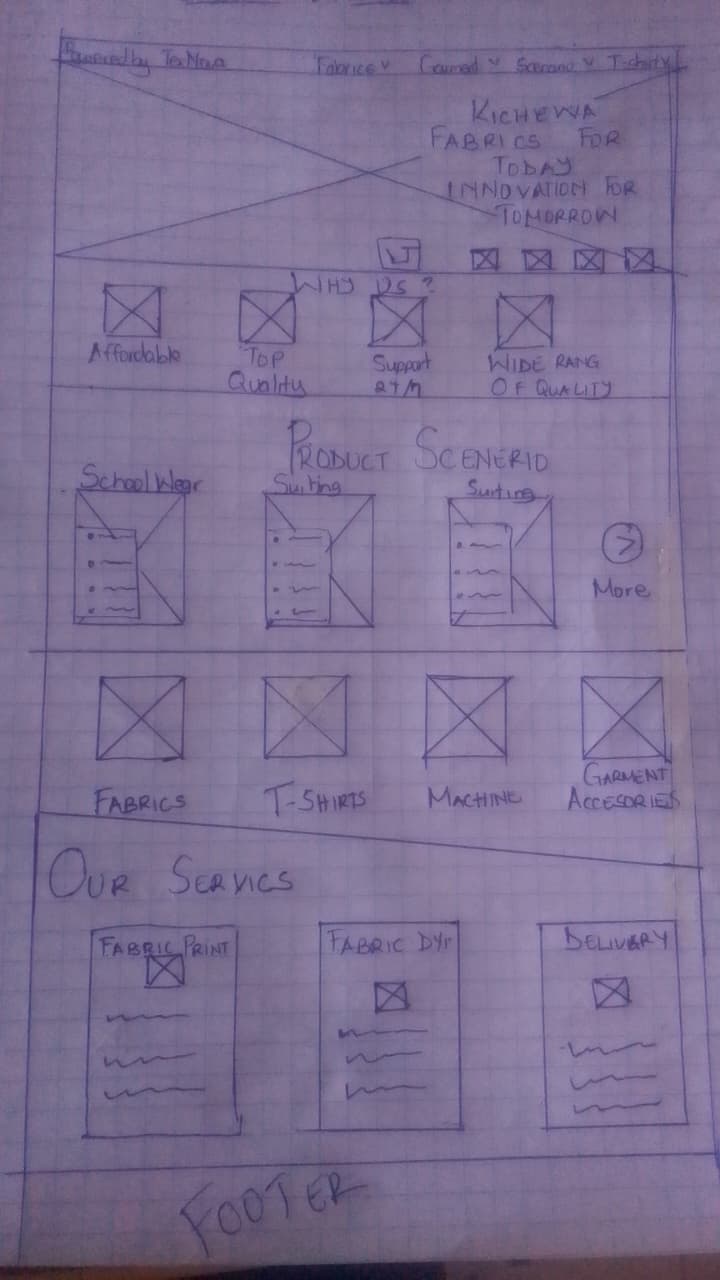 Powered by TexNova Fabrics Garmed Scenario T-shirt
KICHEWA
FABRICS FOR
TODAY
INNOVATION FOR
TOMORROW
WHY US ?
Affordable TOP Support WIDE RANG
Quality 24/7 OF QUALITY
PRODUCT SCENERIO
School Wear Suiting Suiting
More
FABRICS T-SHIRTS MACHINE GARMENT
ACCESORIES
OUR SERVICS
FABRIC PRINT FABRIC DYE DELIVERY
FOOTER